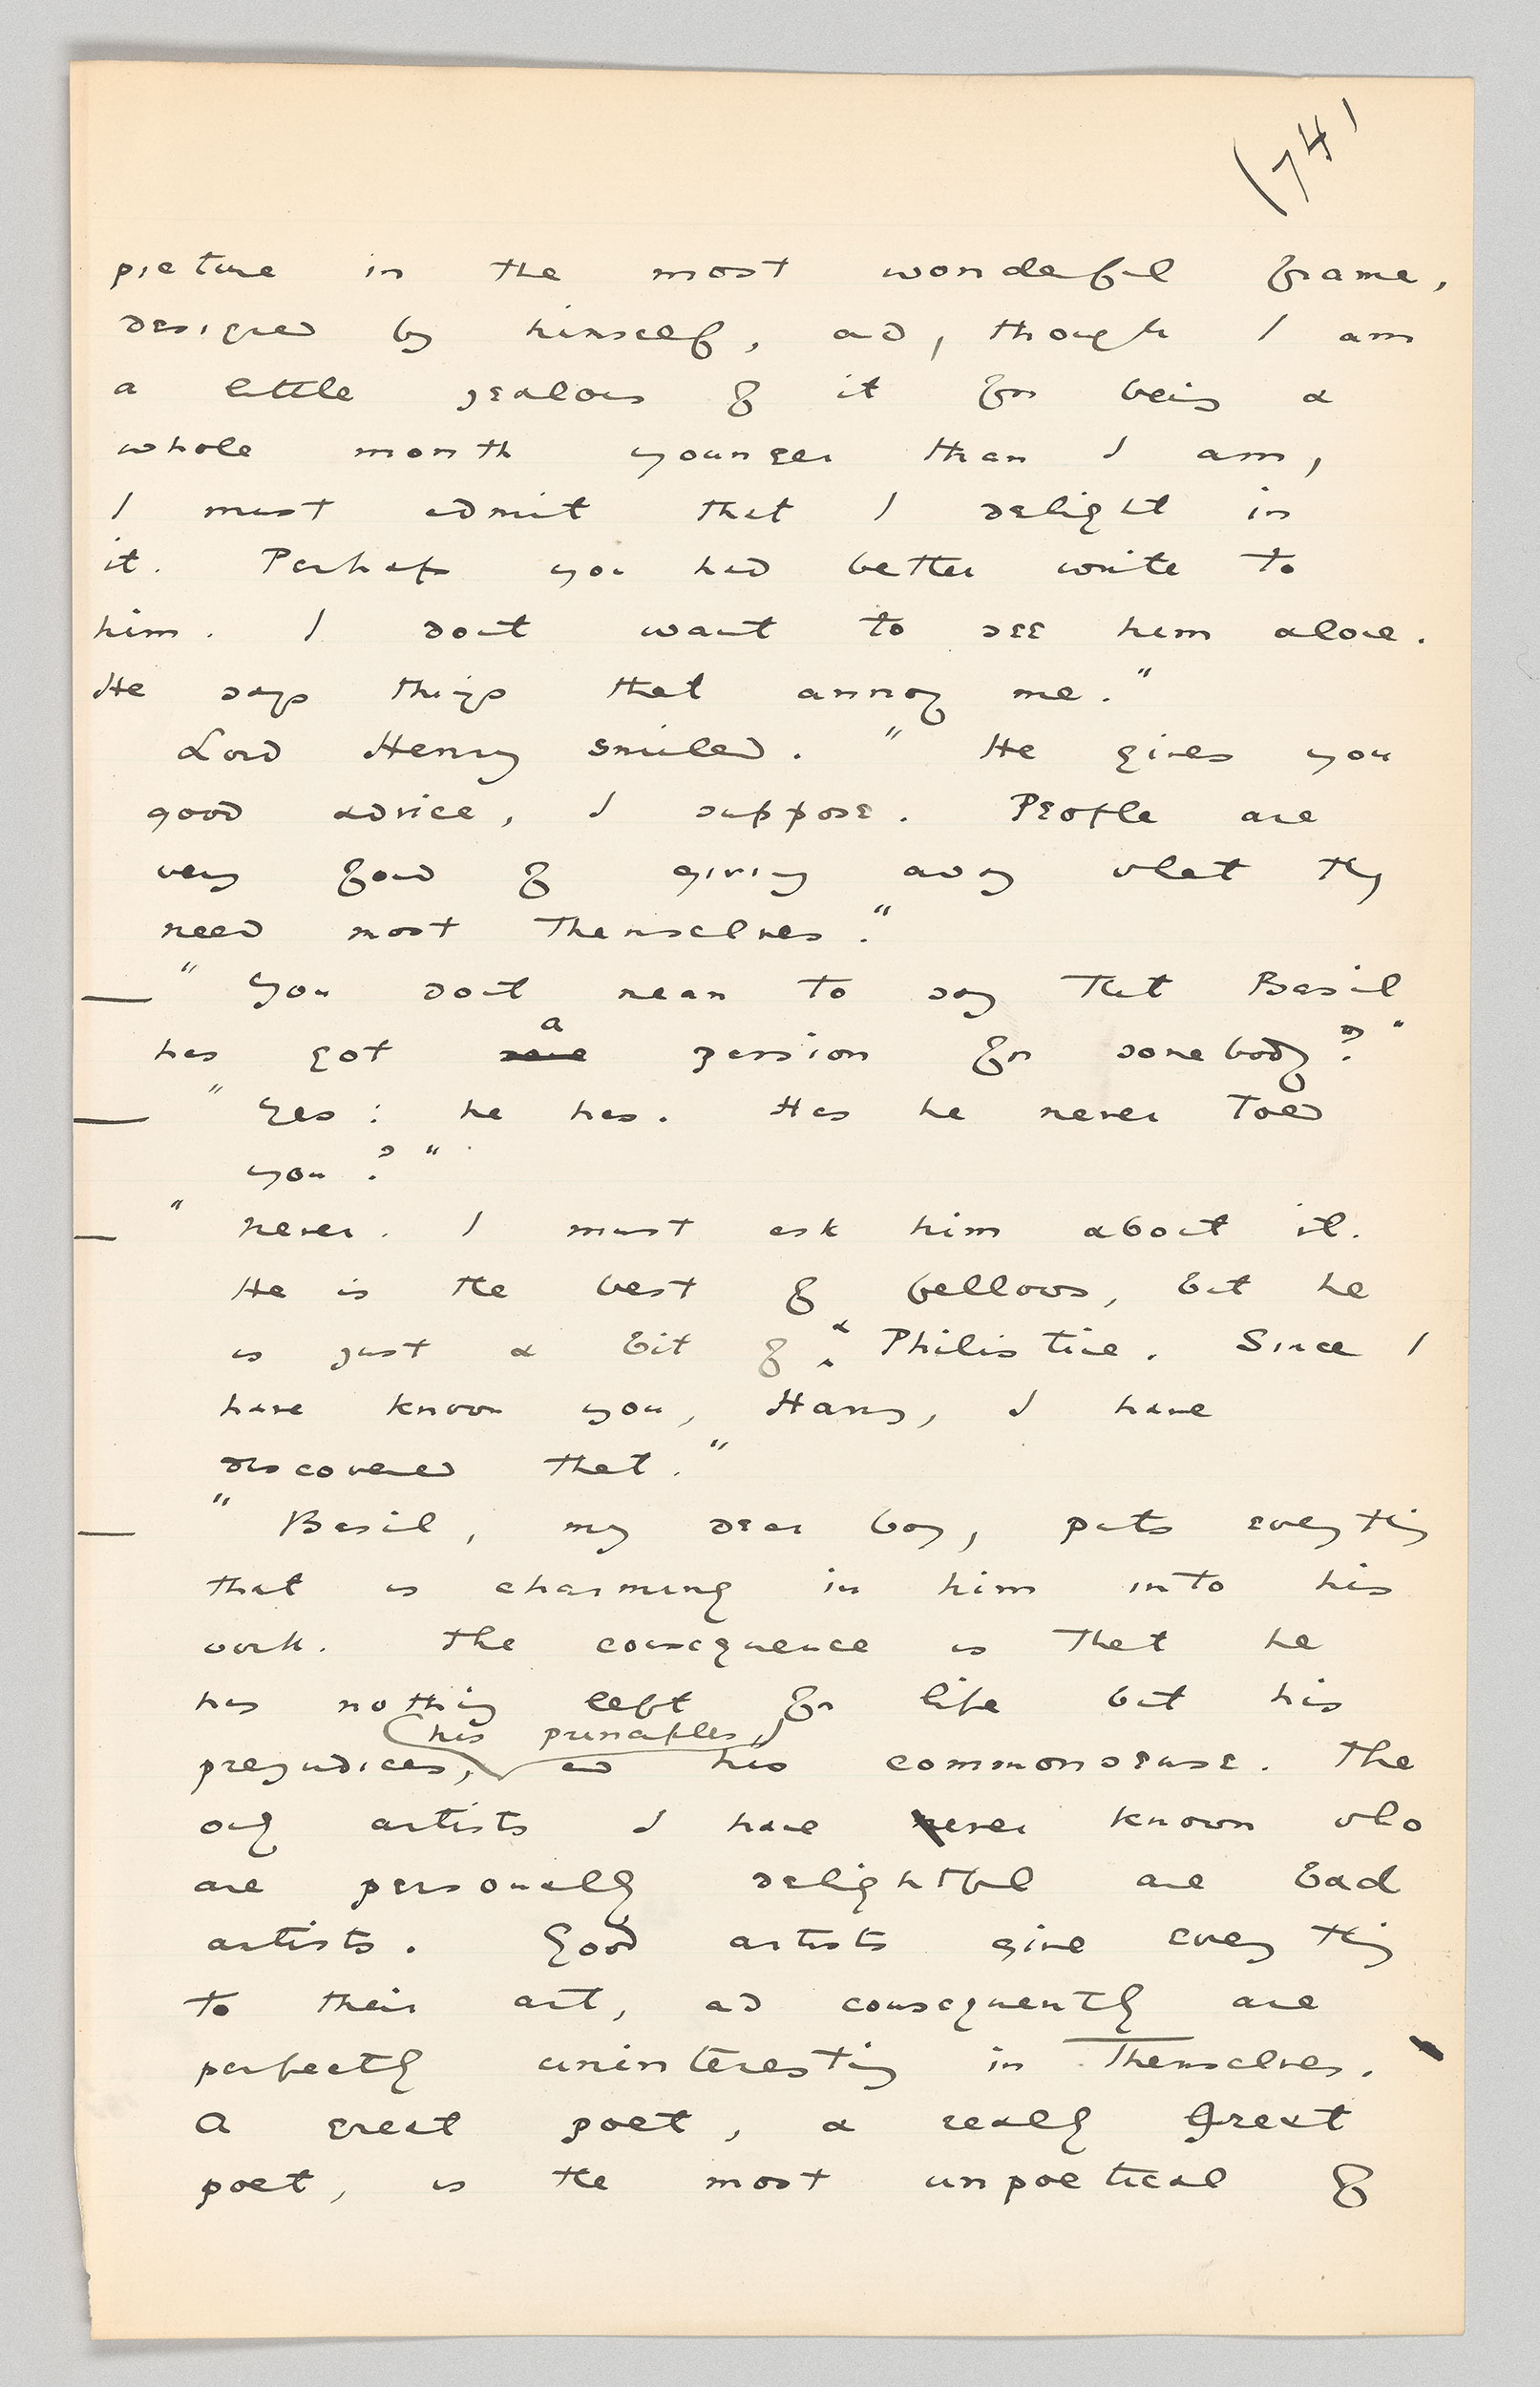 (74)
picture in the most wonderful frame,
designed by himself, and, though I am
a little jealous of it for being a
whole month younger than I am,
I must admit that I delight in
it. Perhaps you had better write to
him. I dont want to see him alone.
He says things that annoy me."
Lord Henry smiled. "He gives you
good advice, I suppose. People are
very fond of giving away what they
need most themselves."
— "You dont mean to say that Basil
a
has got some passion for somebody?"
— "Yes: he has. Has he never told
you?"
— "never. I must ask him about it.
He is the best of fellows, but he
is just a bit of a Philistine. Since I
have known you, Harry, I have
discovered that."
— "Basil, my dear boy, puts everything
that is charming in him into his
work. The consequence is that he
has nothing left for life but his
his principles,
prejudices, and his commonsense. The
only artists I have never known who
are personally delightful are bad
artists. Good artists give everything
to their art, and consequently are
perfectly uninteresting in themselves.
A great poet, a really great
poet, is the most unpoetical of